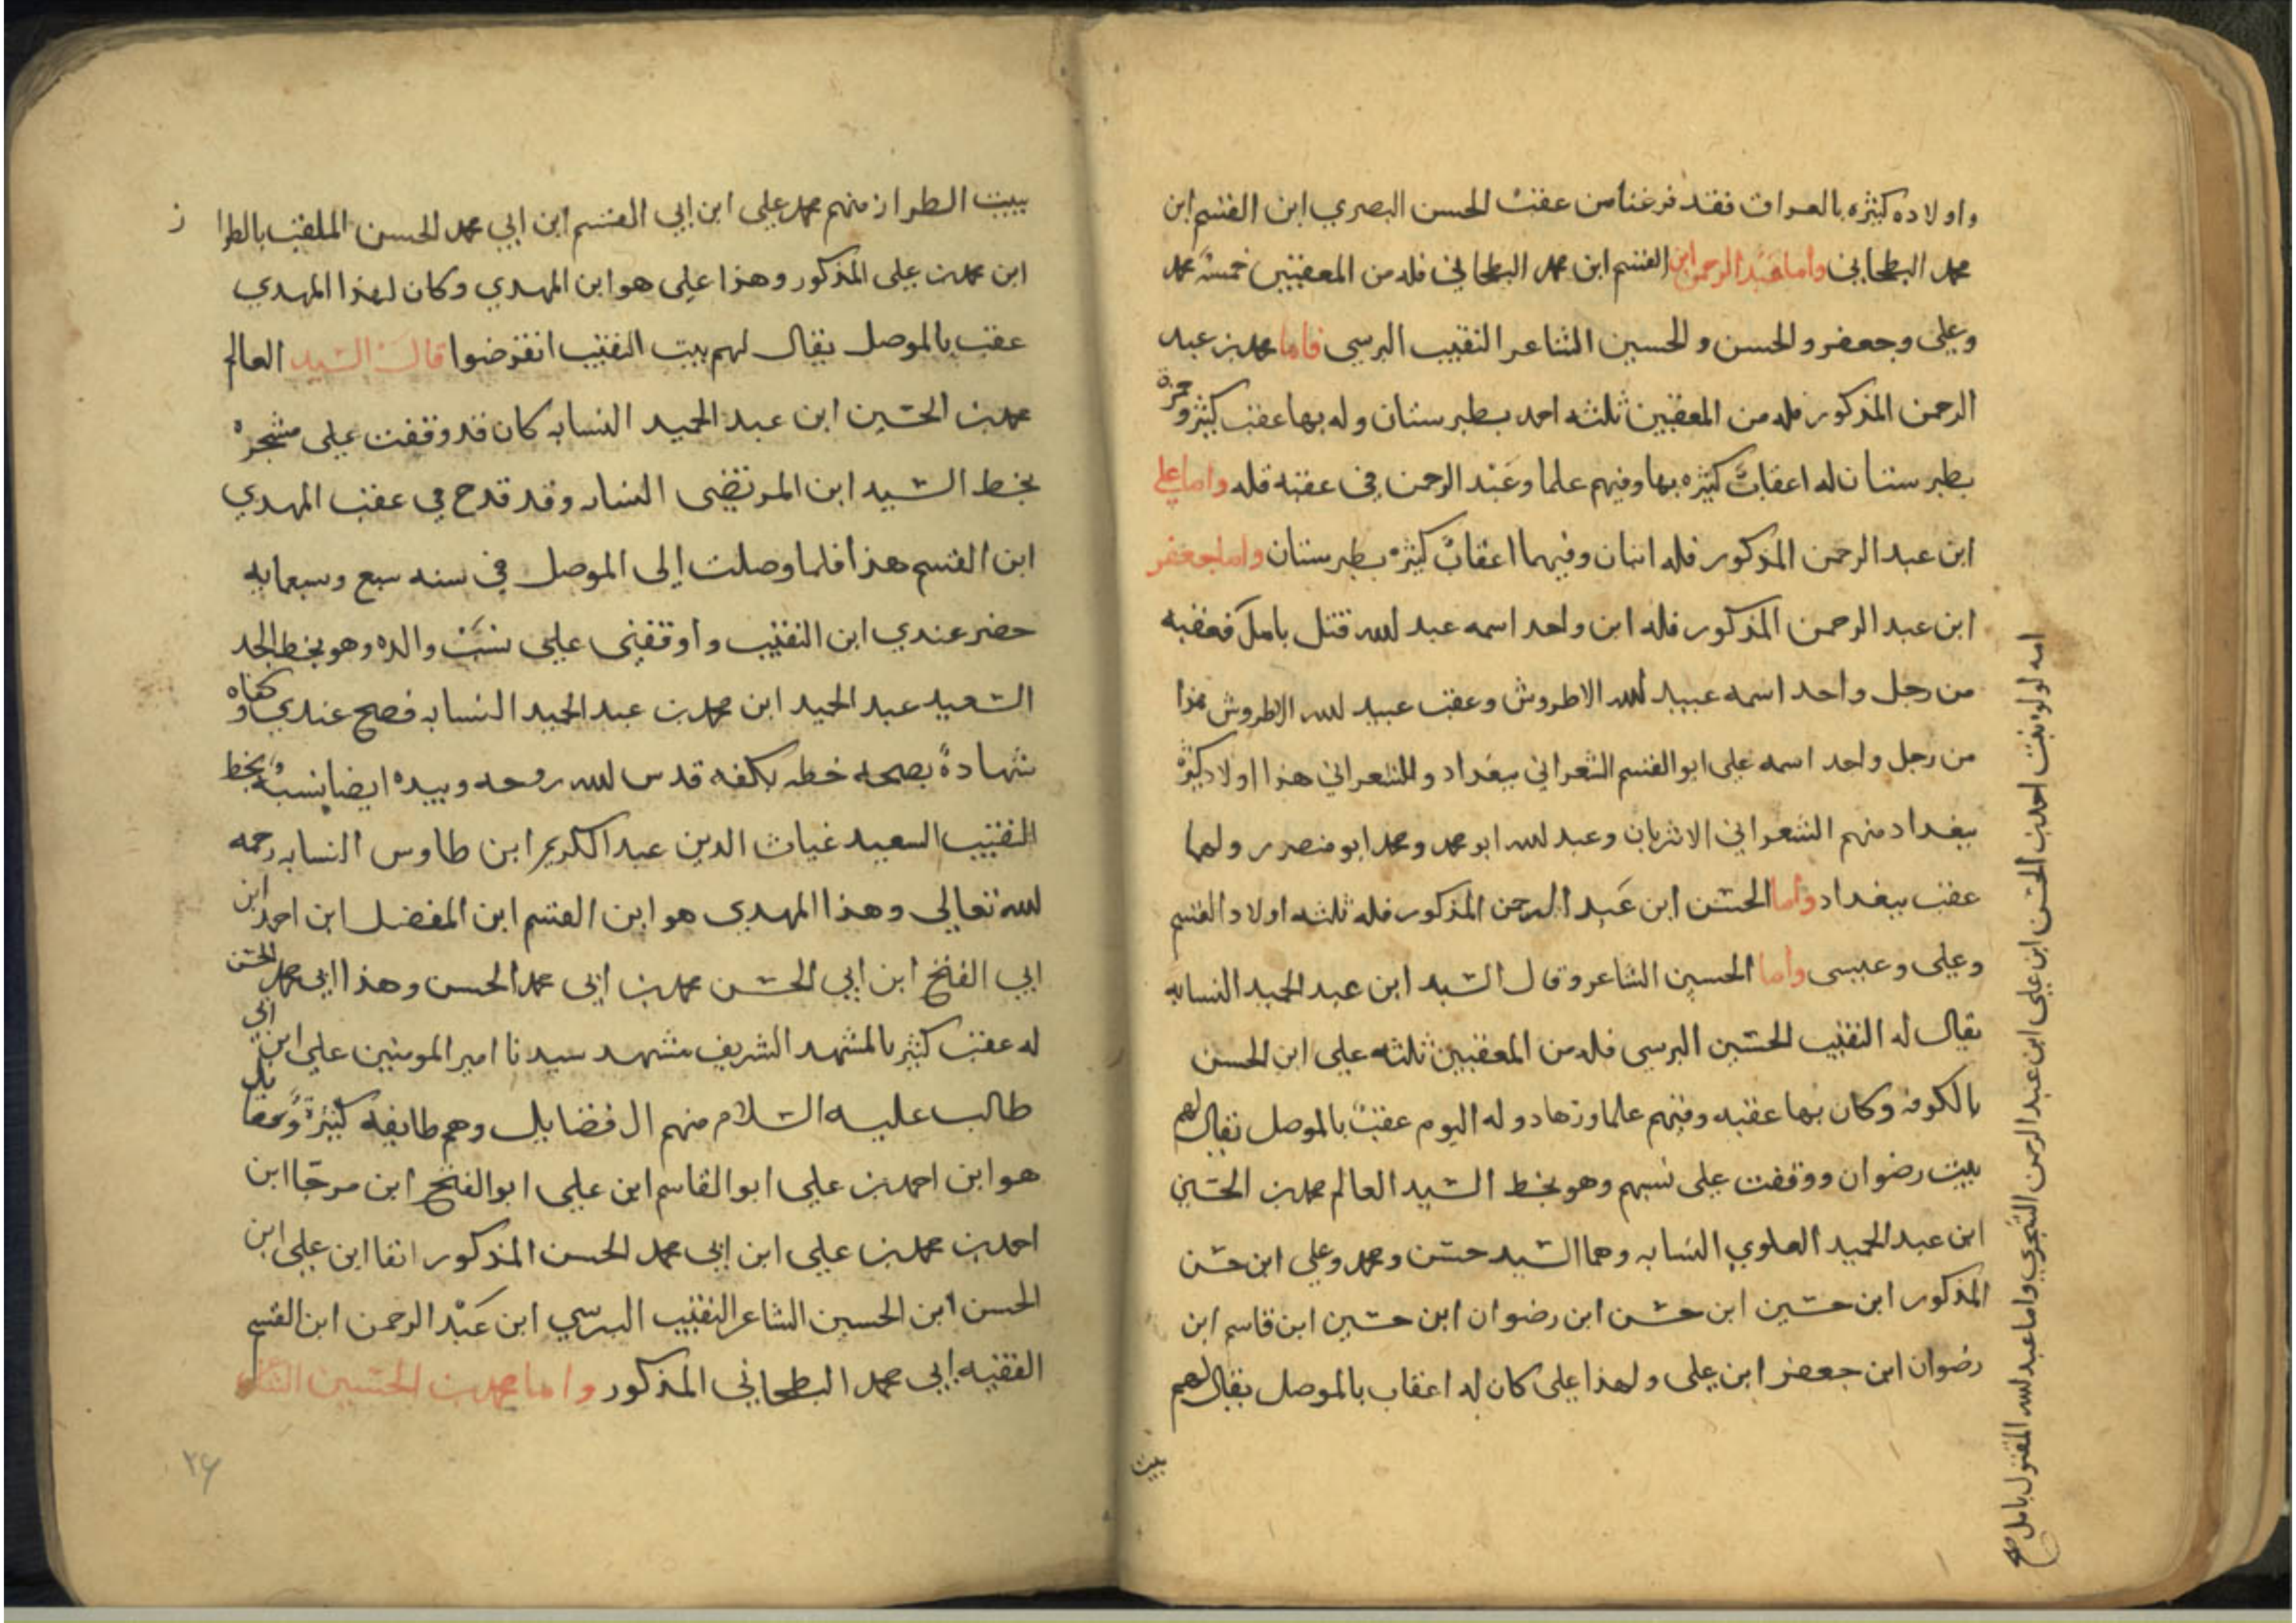 واولاده كثيره بالعراق فقد فرغنا من عقب الحسن البصري ابن القسم ابن
محمد البطحاني واما عبد الرحمن ابن القسم ابن محمد البطحاني فله من المعقبين خمسة محمد
وعلي وجعفر والحسن والحسين الشاعر النقيب البرسي فاما محمد بن عبد
الرحمن المذكور فله من المعقبين ثلثه احمد بطبرستان وله بها عقب كثير وحمزة
بطبرستان له اعقاب كثيره بها وفيهم علما وعبد الرحمن في عقبه قله واما علي
ابن عبد الرحمن المذكور فله اثنان وفيهما اعقاب كثيره بطبرستان واما جعفر
ابن عبد الرحمن المذكور فله ابن واحد اسمه عبد الله قتل بامل فعقبه
من رجل واحد اسمه عبيد الله الاطروش وعقب عبيد الله الاطروش هذا
من رجل واحد اسمه علي ابو القسم الشعراني ببغداد وللشعراني هذا اولاد كثيرة
ببغداد منهم الشعراني الاثريان وعبد الله ابو محمد ومحمد ابو منصور ولهما
عقب ببغداد واما الحسن ابن عبد الرحمن المذكور فله ثلثه اولاد القسم
وعلي وعيسى واما الحسين الشاعر وقال السيد ابن عبد الحميد النسابه
يقال له النقيب الحسين البرسي فله من المعقبين ثلثه علي ابن الحسن
بالكوفه وكان بها عقبه وفيهم علما وزهاد وله اليوم عقب بالموصل يقال لهم
بيت رضوان ووقفت على نسبهم وهو بخط السيد العالم محمد بن الحسين
ابن عبد الحميد العلوي النسابه وهما السيد حسن ومحمد وعلي ابن حسن
المذكور ابن حسين ابن حسن ابن رضوان ابن حسين ابن قاسم ابن
رضوان ابن جعفر ابن علي ولهذا علي كان له اعقاب بالموصل يقال لهم
بيت
امه لولو بنت احمد بن الحسن ابن علي ابن عبد الرحمن الشجري واما عبد الله المقتول بامل صح
ببيت الطراز منهم محمد علي ابن ابي القسم ابن ابي محمد الحسن الملقب بالطرا ز
ابن محمد بن علي المذكور وهذا علي هو ابن المهدي وكان لهذا المهدي
عقب بالموصل يقال لهم بيت النقيب انقرضوا قال السيد العالم
محمد بن الحسين ابن عبد الحميد النسابه كان قد وقفت على مشجره
بخط السيد ابن المرتضى النسابه وقد قدح في عقب المهدي
ابن القسم هذا فلما وصلت الى الموصل في سنه سبع وسبعمايه
حضر عندي ابن النقيب واوقفني على نسب والده وهو بخط الجد
السعيد عبد الحميد ابن محمد بن عبد الحميد النسابه فصح عندي وكفاه
شهادة بصحه خطه بكفه قدس الله روحه وبيده ايضا نسبه وبخط
النقيب السعيد غياث الدين عبد الكريم ابن طاوس النسابه رحمه
الله تعالى وهذا المهدي هو ابن القسم ابن المفضل ابن احمد ابن
ابي الفتح ابن ابي الحسن محمد بن ابي محمد الحسن وهذا ابي محمد الحسن
له عقب كثير بالمشهد الشريف مشهد سيدنا امير المومنين علي ابن ابي
طالب عليه السلام منهم ال فضايل وهم طايفه كثيرة وفضايل
هو ابن احمد بن علي ابو القاسم ابن علي ابو الفتح ابن مرجا ابن
احمد بن محمد بن علي ابن ابي محمد الحسن المذكور انفا ابن علي ابن
الحسن ابن الحسين الشاعر النقيب البرسي ابن عبد الرحمن ابن القسم
الفقيه ابي محمد البطحاني المذكور واما محمد بن الحسين
٢٤